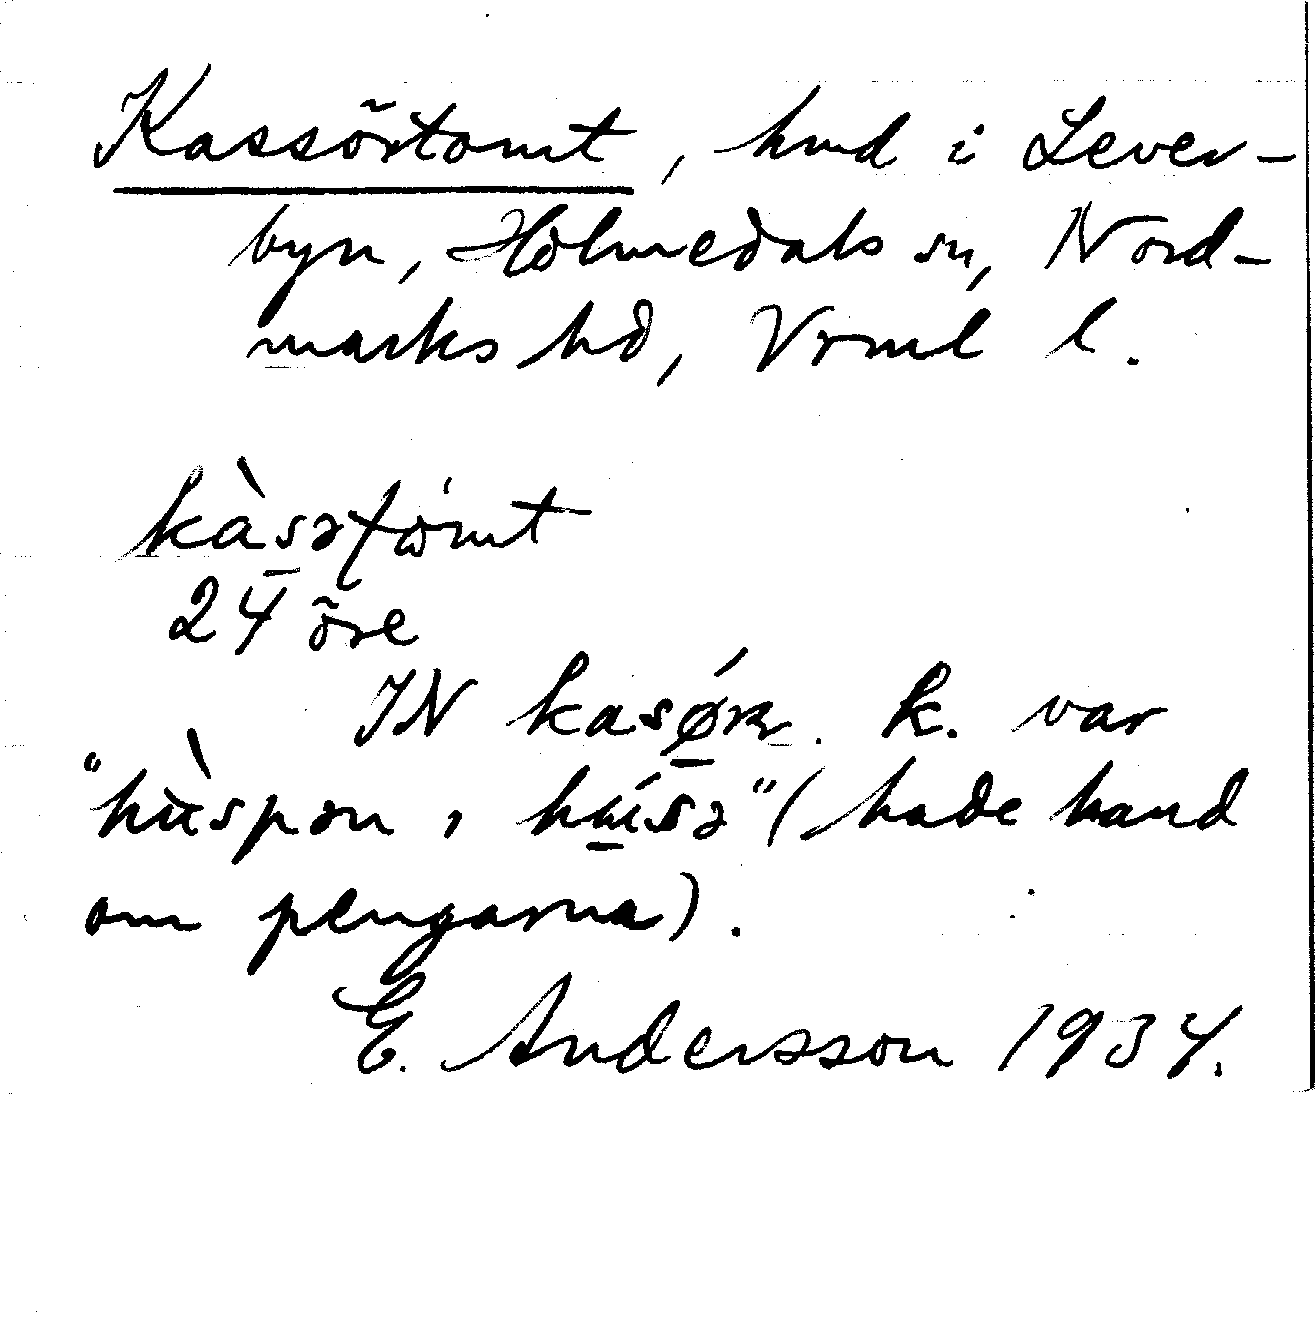 Kassörtomt, hmd i Lever-
byn, Holmedals sn, Nord-
marks hd, Vrml l.
24 öre
IN kasǿr. k. var
"hùspən i húsə" (hade hand
om pengarna).
E. Andersson 1934.